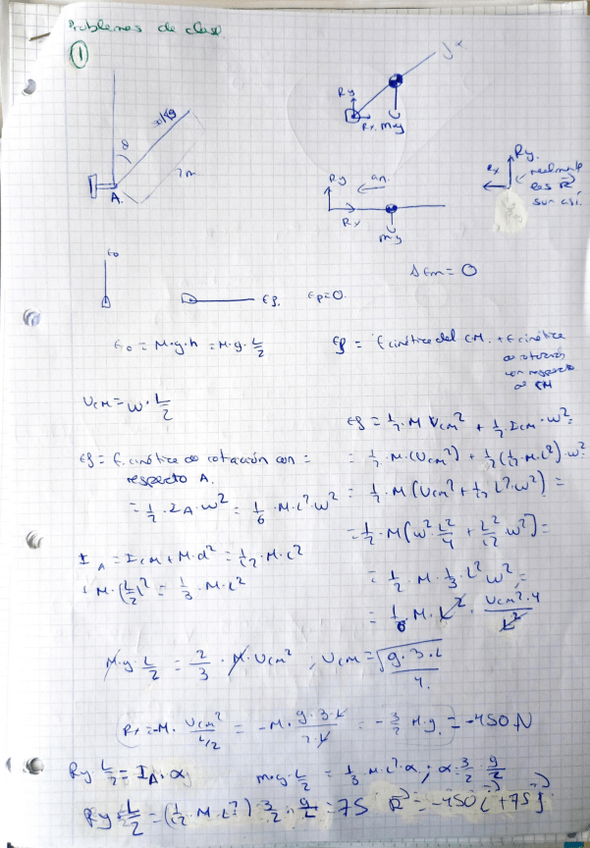 Problemas de clase
①
θ
7m
A.
Ry
Rx
mg
x
Ry
an.
Rx
mg
Ry.
Rx
realmente
las R⃗
son así.
ΔEm = 0
E₀
Ef.
Ep=0.
E₀ = M·g·h = M·g·L/2
Ef = E cinética del CM. + E cinética
de rotación
con respecto
al CM
Vcm = ω·L/2
Ef = 1/2·M Vcm² + 1/2·Icm·ω² =
Ef = E. cinética de rotación con =
respecto A.
= 1/2·M·(Vcm²) + 1/2(1/12·M·L²)·ω² =
= 1/2·IA·ω² = 1/6·M·L²ω²
= 1/2·M(Vcm² + 1/12 L²·ω²) =
= 1/2·M(ω²·L²/4 + L²/12 ω²) =
IA = Icm + M·d² = 1/12·M·L²
+ M·(L/2)² = 1/3·M·L²
= 1/2·M·1/3·L²ω² =
= 1/6·M·L²·Vcm²·4/L²
M·g L/2 = 2/3·M·Vcm² ; Vcm = √(g·3·L/4.)
Rx = -M·Vcm²/(L/2) = -M·g·3·L/2·L = -3/2 M·g. = -450N
Ry L/2 = IA·α
m·g·L/2 = 1/3·M·L²·α ; α = 3/2·g/L
Ry·L/2 = (1/12·M·L²) 3/2·g/L = 75
R⃗ = -450i⃗ + 75j⃗